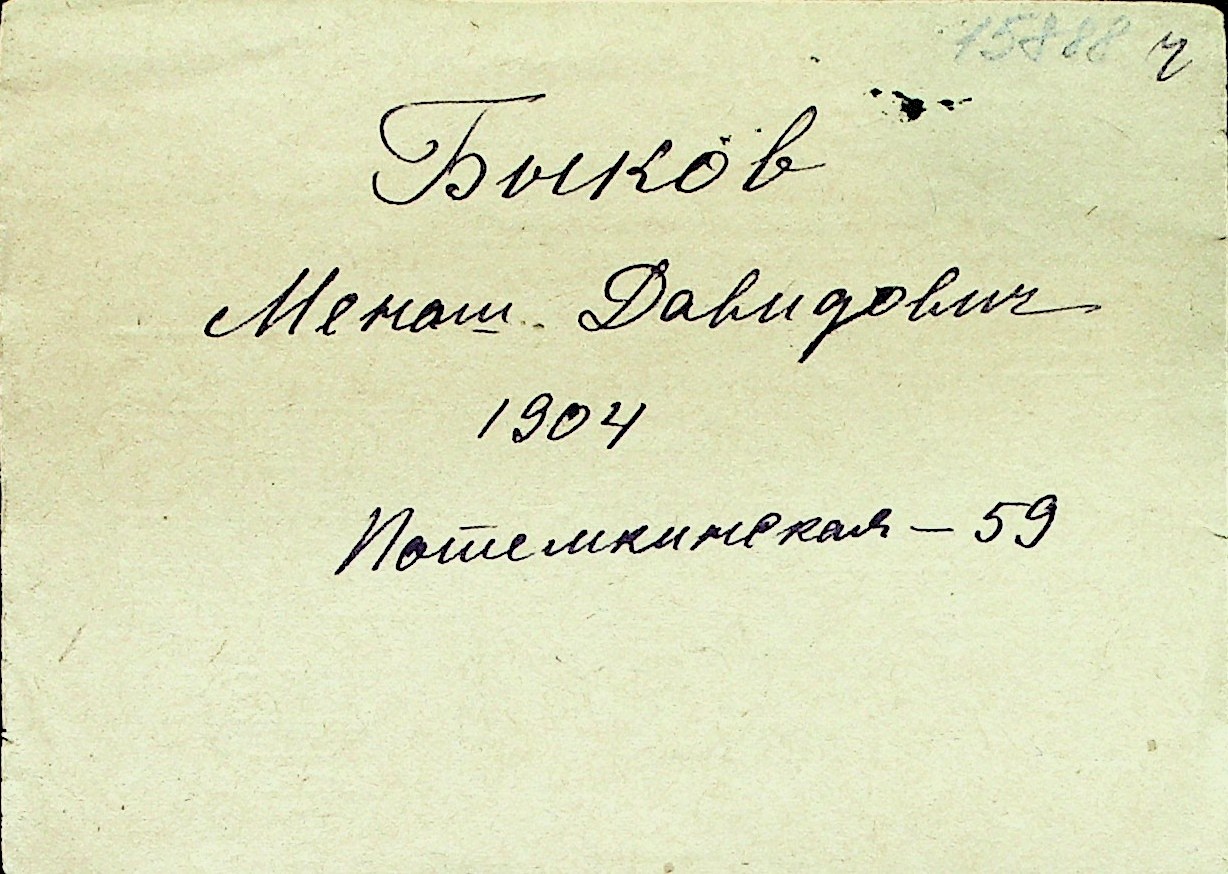 15888 ч
Быков
Менаш Давидович
1904
Потемкинская - 59